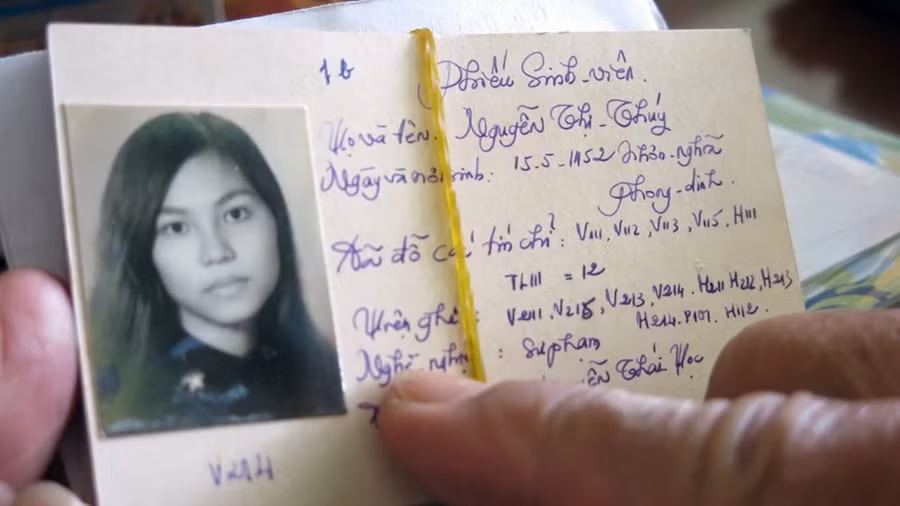 1b
Phiếu Sinh-viên.
Họ và tên. Nguyễn Thị-Thúy
Ngày và nơi sinh: 15-5-1952 Nhơn-nghĩa
Phong-dinh.
Đã đỗ tín chỉ: V111, V112, V113, V115, H111
TL111 = 12
: V211, V215, V213, V214. H211 H212, H213
H214. P101. H112.
Nghề-nghi : Sư phạm
Thái Học
V214